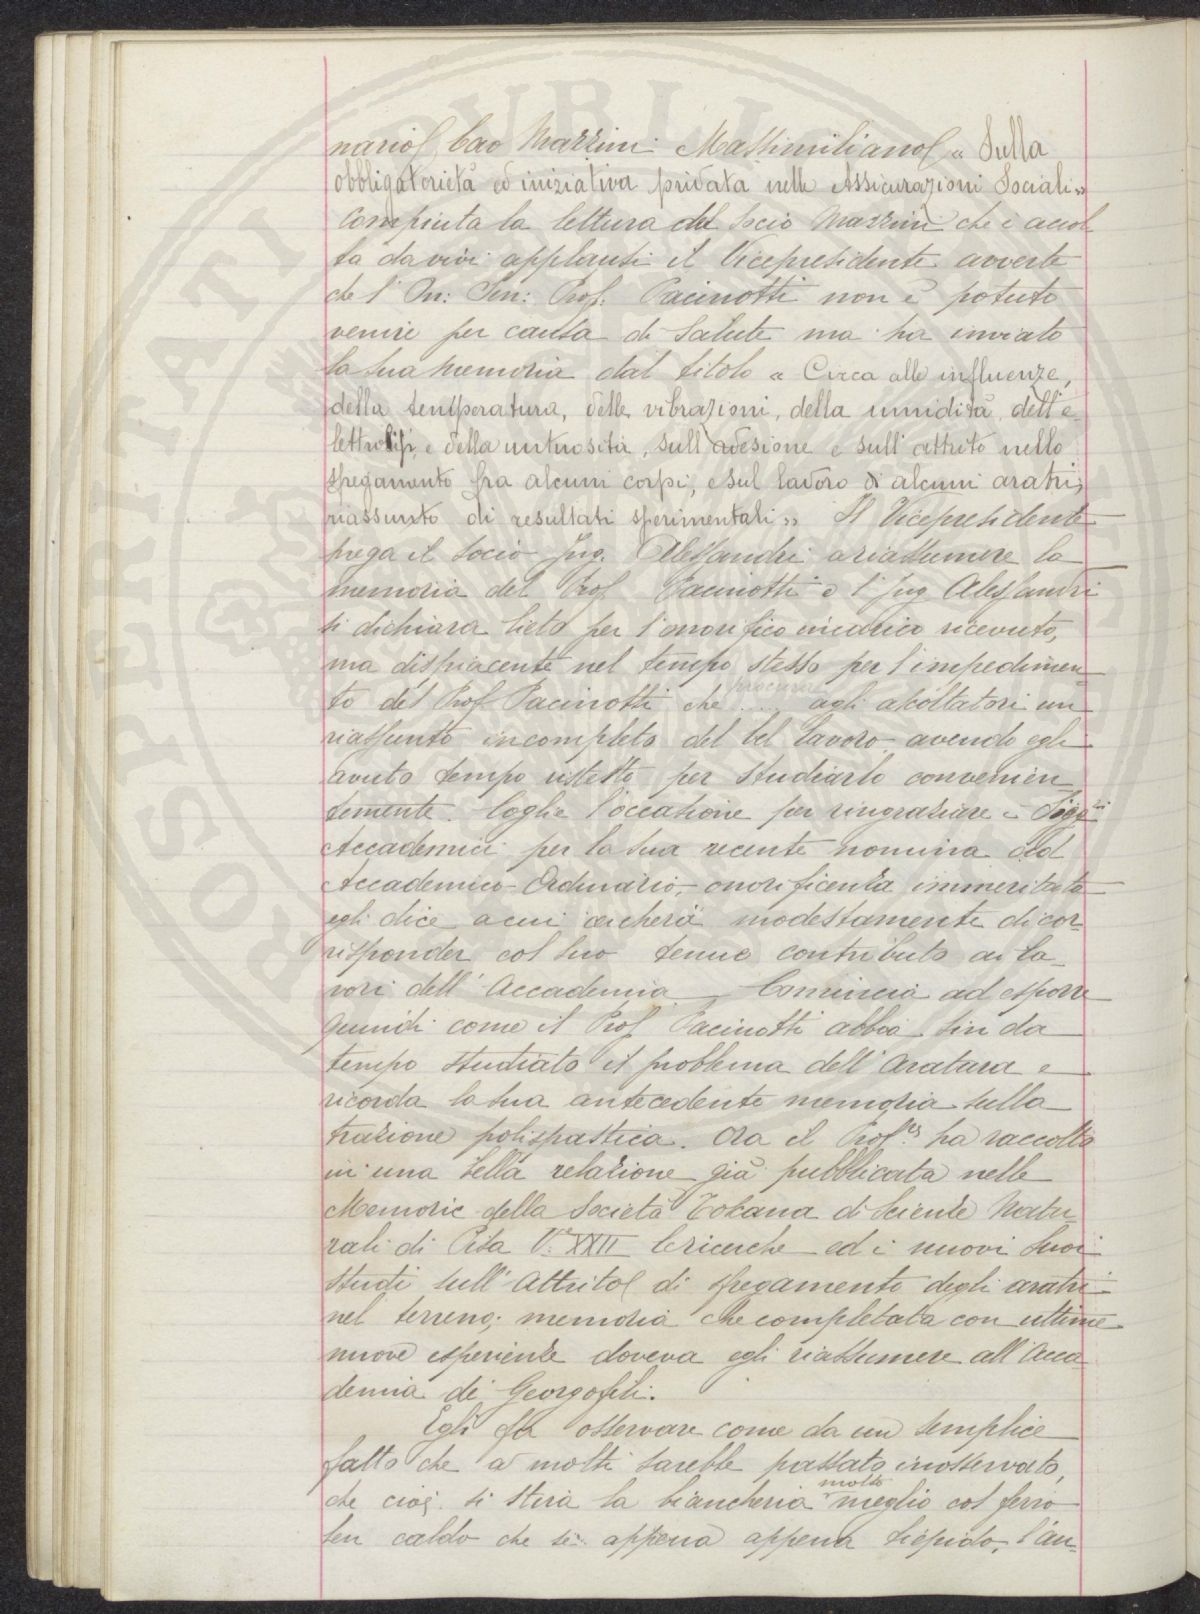 nario Cav Mazzini Massimiliano « Sulla
obbligatorietà ed iniziativa privata nelle Assicurazioni Sociali»
Compiuta la lettura del socio Mazzini che è accol
ta da vivi applausi il Vicepresidente avverte
che l'On: Sen: Prof. Pacinotti non è potuto
venire per causa di salute ma ha inviato
la sua memoria dal titolo « Circa alle influenze,
della temperatura, delle vibrazioni, della umidità dell'e
lettrolisi, e della untuosità, sull'adesione e sull'attrito nello
spegamento fra alcuni corpi, e sul lavoro di alcuni aratri;
riassunto di resultati sperimentali» Il Vicepresidente
prega il socio Ing. Alessandri a riassumere la
memoria del Prof Pacinotti e l'Ing Alessandri
si dichiara lieto per l'onorifico incarico ricevuto,
ma dispiacente nel tempo stesso per l'impedimen
to del Prof Pacinotti che procura agli ascoltatori un
riassunto incompleto del bel lavoro avendo egli
avuto tempo ristretto per studiarlo convenien
temente. Coglie l'occasione per ringraziare i Sigg.ri
Accademici per la sua recente nomina ad
Accademico Ordinario, onorificenza immeritata
egli dice a cui cercherà modestamente di cor
risponder col suo tenue contributo ai la
vori dell'Accademia. Comincia ad esporre
quindi come il Prof Pacinotti abbia sin da
tempo studiato il problema dell'aratura e
ricorda la sua antecedente memoria sulla
trazione polispastica. Ora il Prof.re ha raccolto
in una bella relazione già pubblicata nelle
Memorie della Società Toscana di Scienze Natu
rali di Pisa V. XXII le ricerche ed i nuovi suoi
studi sull'Attrito di spegamento degli aratri
nel terreno; memoria che completata con ultime
nuove esperienze doveva egli riassumere all'Acca
demia dei Georgofili.
Egli fa osservare come da un semplice
fatto che a molti sarebbe passato inosservato,
che cioè si stira la biancheria molto meglio col ferro
ben caldo che se appena appena tiepido, l'an